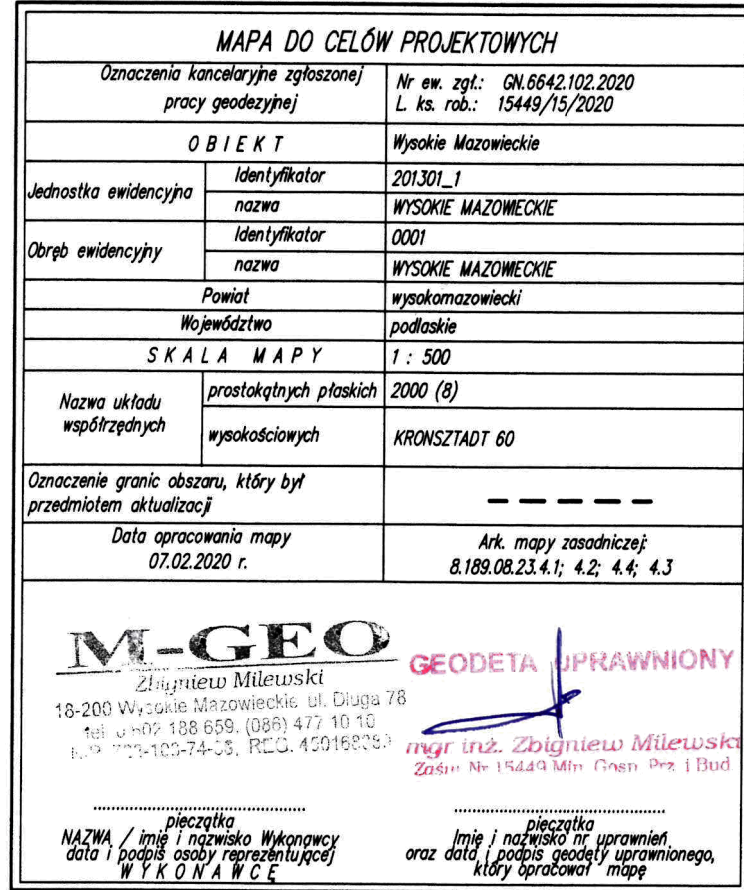 MAPA DO CELÓW PROJEKTOWYCH
Oznaczenia kancelaryjne zgłoszonej
pracy geodezyjnej
Nr ew. zgł.: GN.6642.102.2020
L. ks. rob.: 15449/15/2020
OBIEKT
Wysokie Mazowieckie
Jednostka ewidencyjna
Identyfikator
201301_1
nazwa
WYSOKIE MAZOWIECKIE
Obręb ewidencyjny
Identyfikator
0001
nazwa
WYSOKIE MAZOWIECKIE
Powiat
wysokomazowiecki
Województwo
podlaskie
SKALA MAPY
1 : 500
Nazwa układu
współrzędnych
prostokątnych płaskich
2000 (8)
wysokościowych
KRONSZTADT 60
Oznaczenie granic obszaru, który był
przedmiotem aktualizacji
Data opracowania mapy
07.02.2020 r.
Ark. mapy zasadniczej:
8.189.08.23.4.1; 4.2; 4.4; 4.3
M-GEO
Zbigniew Milewski
18-200 Wysokie Mazowieckie ul. Długa 78
tel. 188 659, (086) 477 10 10
GEODETA UPRAWNIONY
mgr inż. Zbigniew Milewski
Zaśw. Nr 15449 Min. Gosp. Prz. i Bud
pieczątka
NAZWA / imię i nazwisko Wykonawcy
data i podpis osoby reprezentującej
WYKONAWCĘ
pieczątka
Imię i nazwisko nr uprawnień
oraz data i podpis geodety uprawnionego,
który opracował mapę